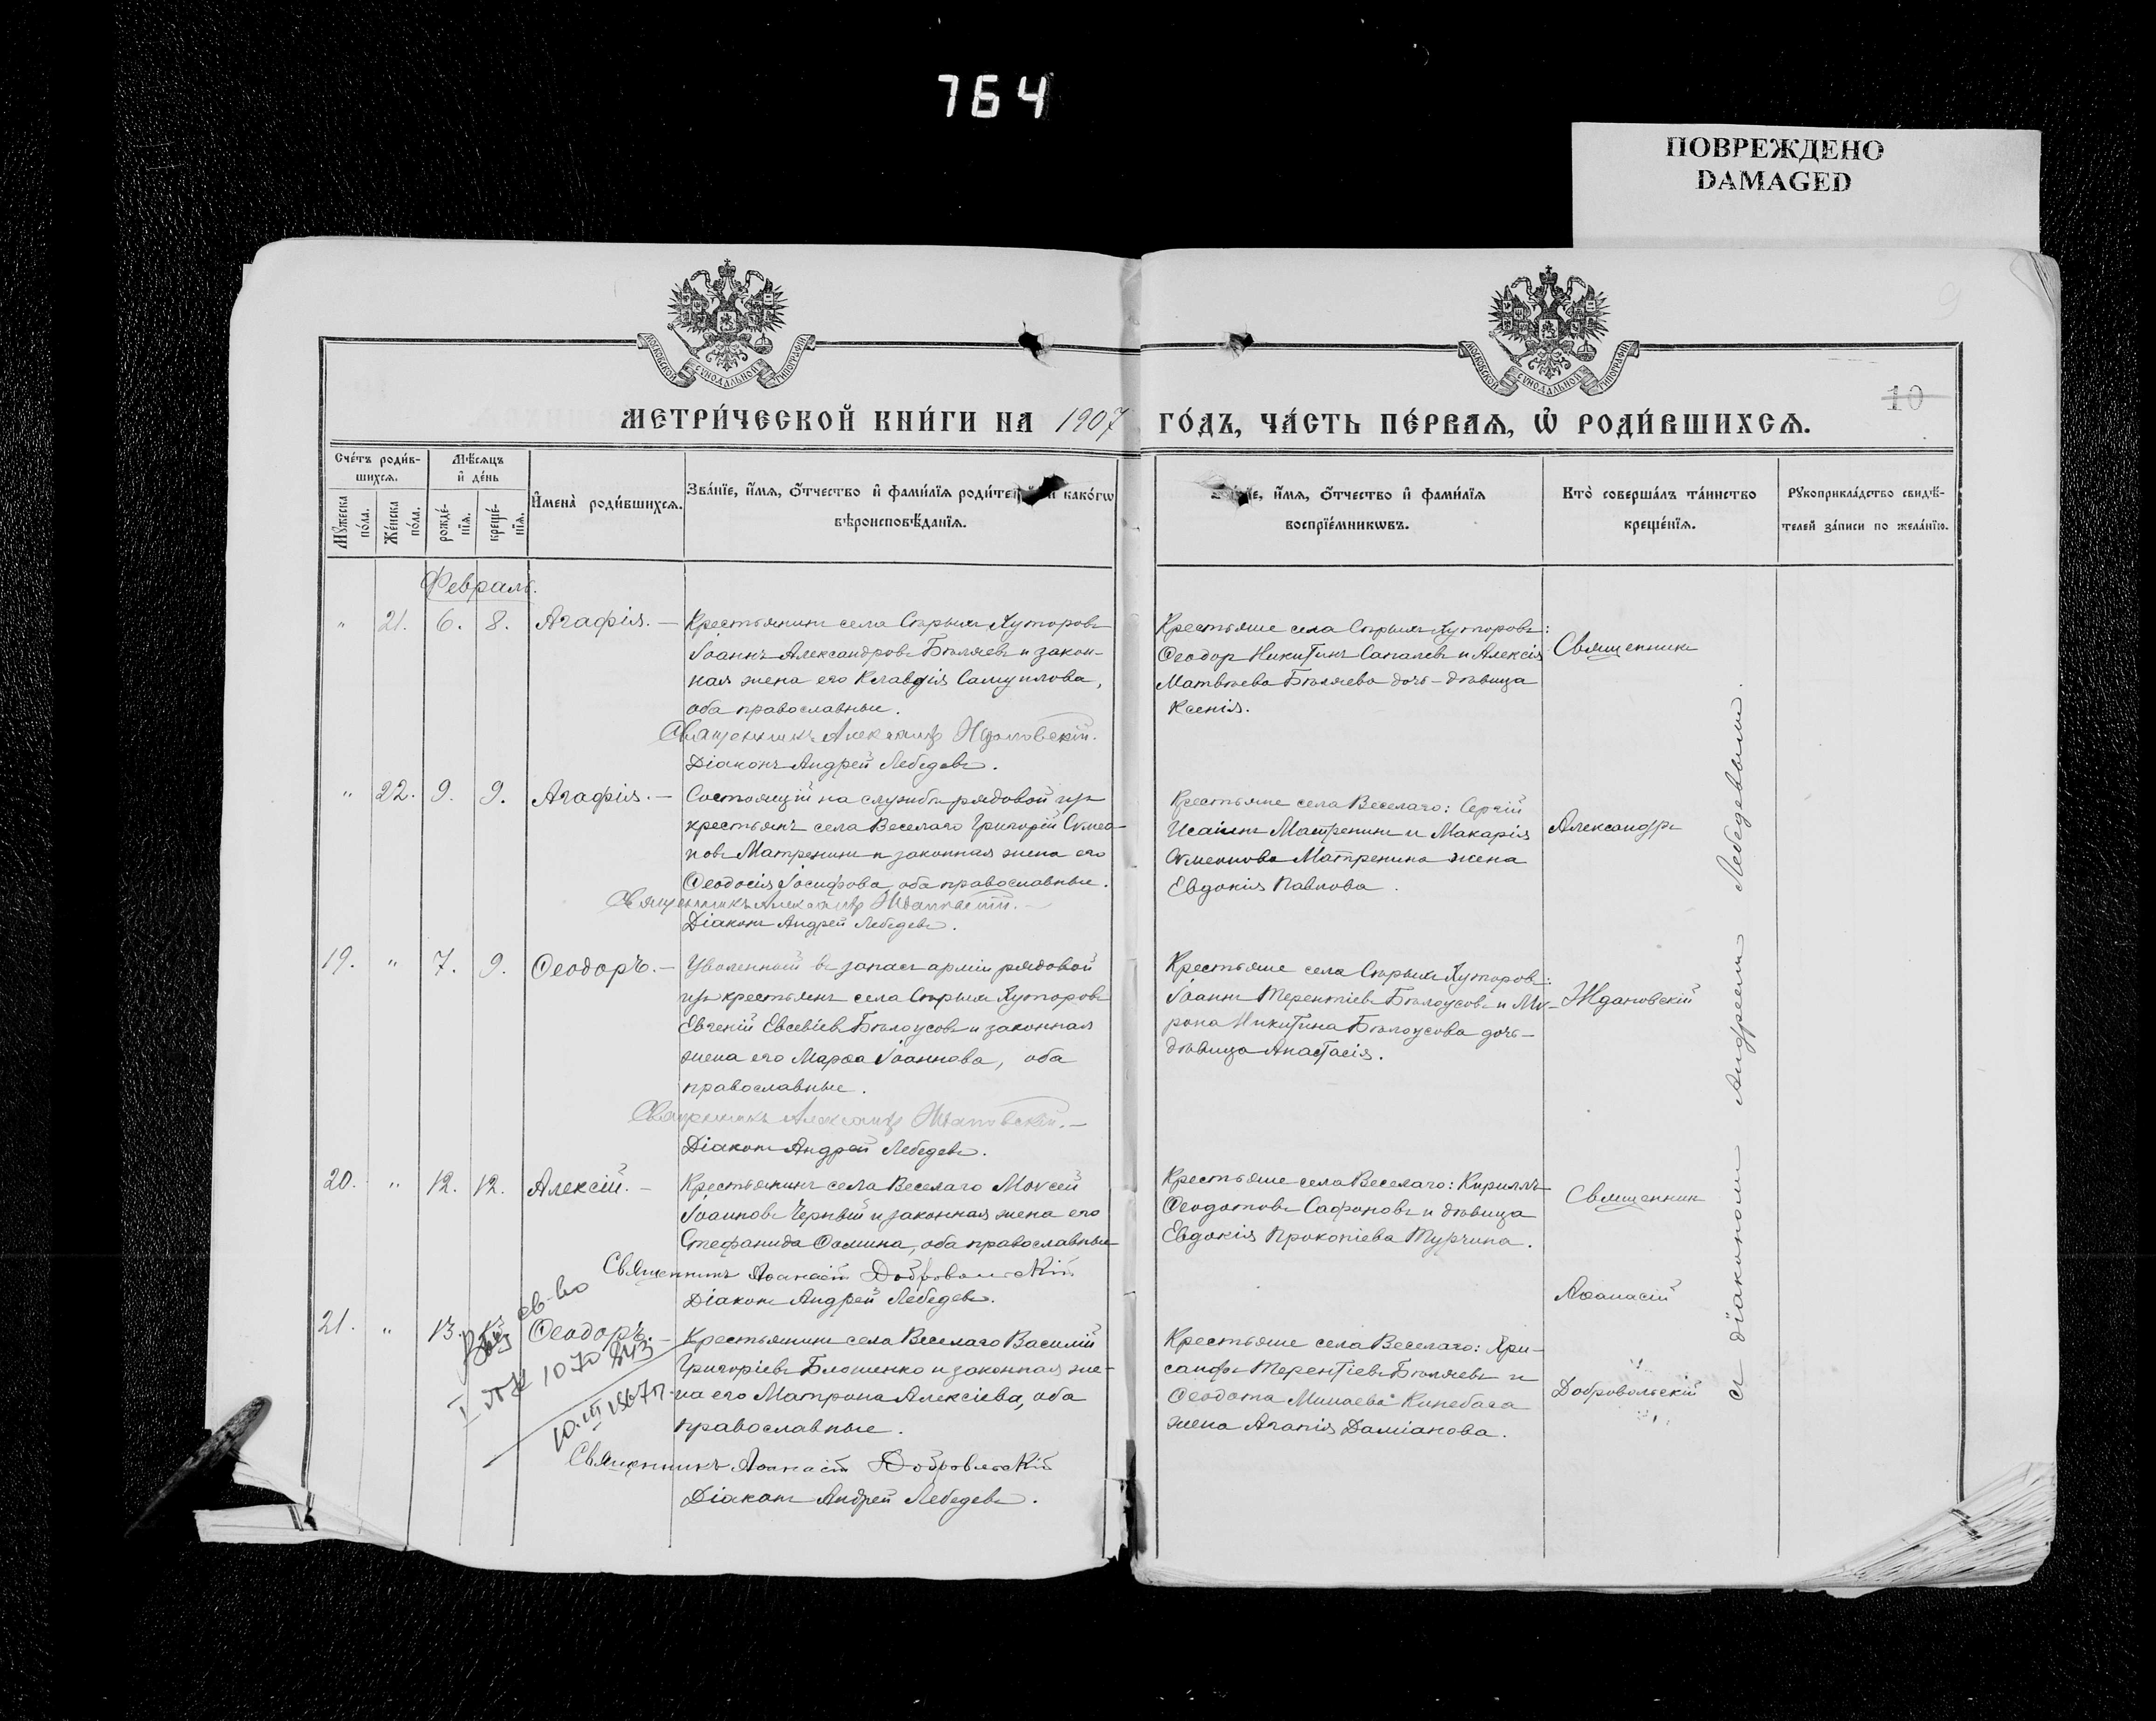 764
ПОВРЕЖДЕНО
DAMAGED
МОСКОВСКОЙ СѴНОДАЛЬНОЙ ТИПОГРАФІИ
МОСКОВСКОЙ СѴНОДАЛЬНОЙ ТИПОГРАФІИ
9
10
МЕТРИ́ЧЕСКОЙ КНИ́ГИ НА 1907 ГО́ДЪ, ЧА́СТЬ ПЕ́РВАѦ, Ѡ҆ РОДИ́ВШИХСѦ.
Сче́тъ роди́в-
шихсѧ.
Мꙋ́жеска
по́ла.
Же́нска
по́ла.
Мѣ́сѧцъ
и҆ де́нь
рожде́-
нїѧ.
креще́-
нїѧ.
И҆мена̀ роди́вшихсѧ.
Зва́нїе, и҆́мѧ, ѻ҆́тчество и҆ фами́лїѧ роди́те како́гѡ
вѣроисповѣ́данїѧ.
е, и҆́мѧ, ѻ҆́тчество и҆ фами́лїѧ
воспрїе́мникѡвъ.
Кто̀ соверша́лъ та́инство
креще́нїѧ.
Рꙋкоприкла́дство свидѣ́-
телей за́писи по жела́нїю.
Февраль.
" 21. 6. 8. Агафія. —
Крестьянинъ села Старыхъ Хуторовъ
Іоаннъ Александровъ Бѣляевъ и закон-
ная жена его Клавдія Самуилова,
оба православные.
Священникъ Александръ Ждановскій.
Діаконъ Андрей Лебедевъ.
Крестьяне села Старыхъ Хуторовъ:
Ѳеодор Никитинъ Сапалевъ и Алексія
Матвѣева Бѣляева дочь-дѣвица
Ксенія.
Священникъ
" 22. 9. 9. Агафія. —
Состоящій на службѣ рядовой изъ
крестьянъ села Веселаго Григорій Сѵмео-
новъ Матренинъ и законная жена его
Ѳеодосія Іосифова, оба православные.
Священникъ Александръ Ждановскій. —
Діаконъ Андрей Лебедевъ.
Крестьяне села Веселаго: Сергій
Исаіинъ Матренинъ и Макарія
Сѵмеонова Матренина жена
Евдокія Павлова.
Александръ
19. " 7. 9. Ѳеодоръ. —
Уволенный въ запасъ арміи рядовой
изъ крестьянъ села Старыхъ Хуторовъ
Евгеній Евсевіевъ Бѣлоусовъ и законная
жена его Марѳа Іоаннова, оба
православные.
Священникъ Александръ Ждановскій. —
Діаконъ Андрей Лебедевъ.
Крестьяне села Старыхъ Хуторовъ:
Іоаннъ Терентіевъ Бѣлоусовъ и Мѵ-
рона Никитина Бѣлоусова дочь-
дѣвица Анастасія.
Ждановскій
20. " 12. 12. Алексій. —
Крестьянинъ села Веселаго Моѵсей
Іоанновъ Черный и законная жена его
Стефанида Ѳомина, оба православные
Священникъ Аѳанасій Добровольскій
Діаконъ Андрей Лебедевъ.
Крестьяне села Веселаго: Кириллъ
Ѳеодотовъ Сафоновъ и дѣвица
Евдокія Прокопіева Турчина.
Священникъ
Аѳанасій
21. " 13. 13 Ѳеодоръ. —
св-во
10.III 1967г.
Крестьянинъ села Веселаго Василій
Григоріевъ Блошенко и законная же-
на его Матрона Алексіева, оба
православные.
Священникъ Аѳанасій Добровольскій
Діаконъ Андрей Лебедевъ.
Крестьяне села Веселаго: Хри-
санфъ Терентіевъ Бѣляевъ и
Ѳеодота Минаева Кинебага
жена Агапія Даміанова.
Добровольскій
съ діакономъ Андреемъ Лебедевымъ.